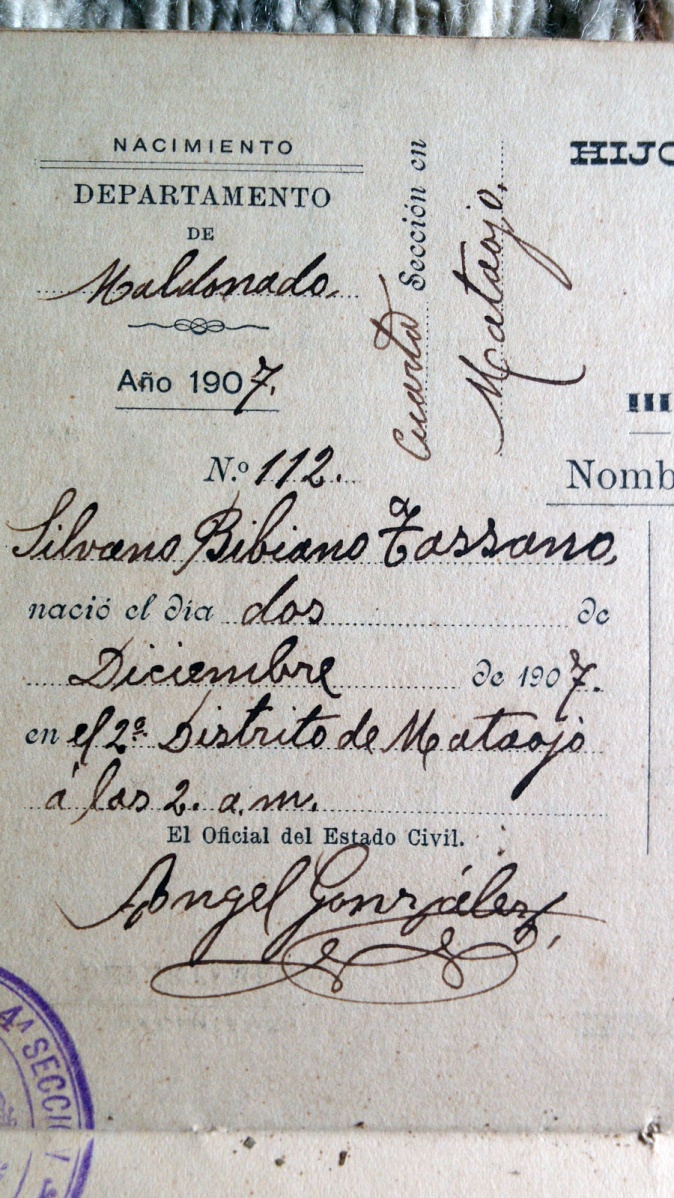 NACIMIENTO
DEPARTAMENTO
DE
Maldonado.
Año 1907.
Cuarta Sección en
Mataojo.
N.º 112.
Silvano Bibiano Tassano,
nació el día dos de
Diciembre de 1907.
en el 2º Distrito de Mataojo
á las 2. a.m.
El Oficial del Estado Civil.
Angel González,
HIJO
Nomb
4ª SECCI